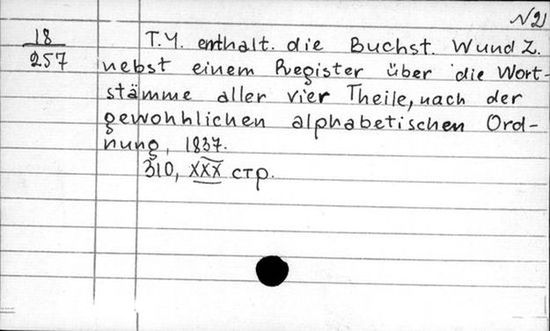 N 2)
18
257
T.4. enthalt. die Buchst. W und Z.
nebst einem Register über die Wort-
stämme aller vier Theile, nach der
gewohhlichen alphabetischen Ord-
nung, 1837.
310, XXX стр.